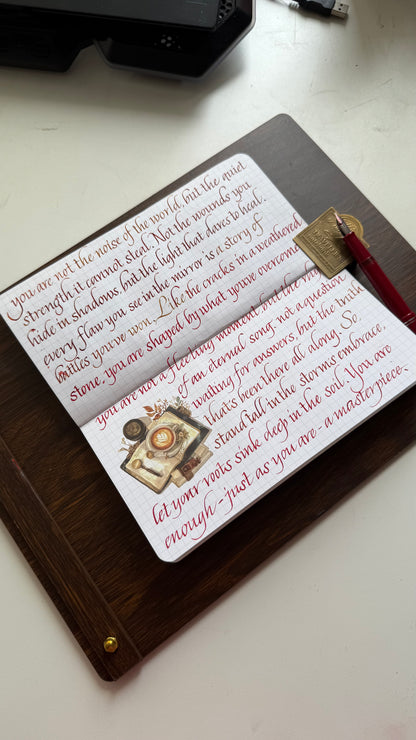 you are not the noise of the world, but the quiet
strength it cannot steal. Not the wounds you
hide in shadows, but the light that dares to heal.
every flaw you see in the mirror is a story of
battles you've won. Like the cracks in a weathered
stone, you are shaped by what you've overcome
you are not a fleeting moment but the
of an eternal song, not a question
waiting for answers, but the truth
that's been there all along. So
stand tall in the storms embrace,
let your roots sink deep in the soil. You are
enough - just as you are - a masterpiece.